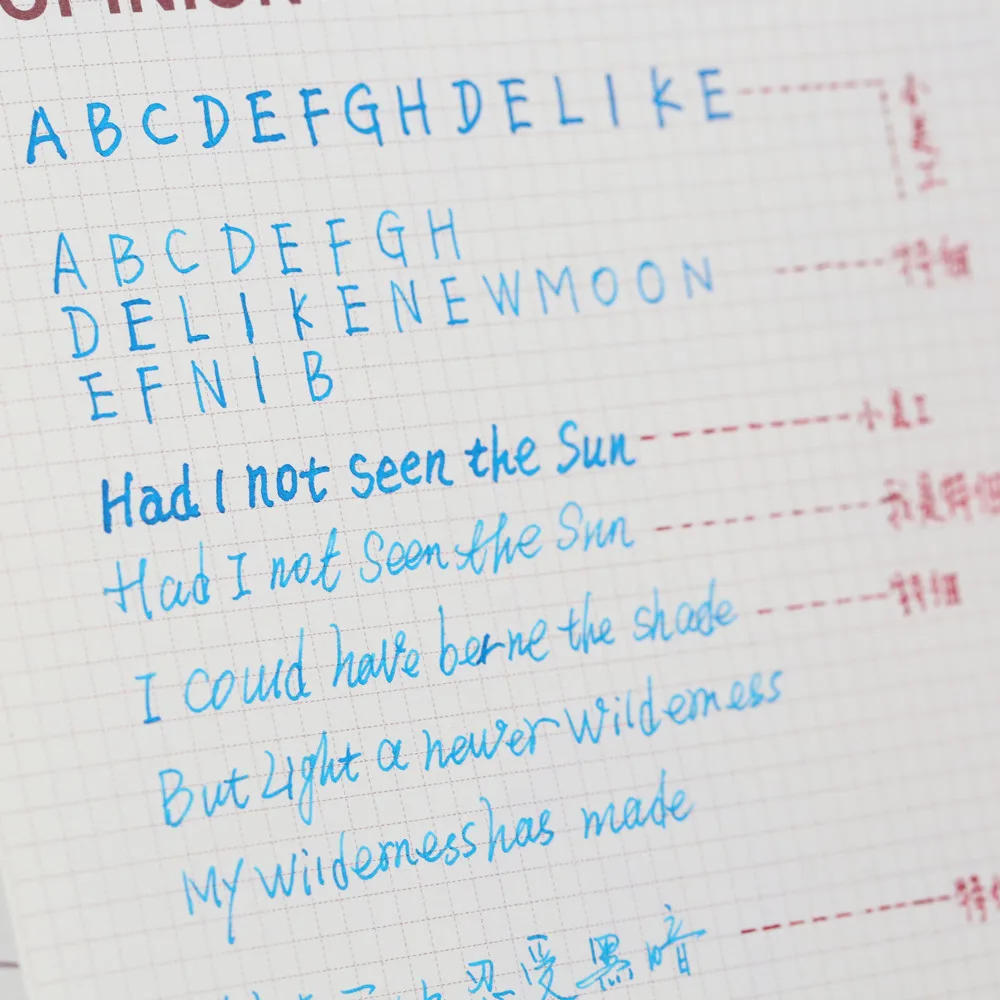 OPINION
ABCDEFGHDELIKE 小美工
ABCDEFGH
DELIKENEWMOON 特细
EFNIB
Had I not seen the Sun 小美工
Had I not Seen the Sun 我是特细
I could have berne the shade 特细
But Light a newer Wilderness
My Wilderness has made
忍受黑暗